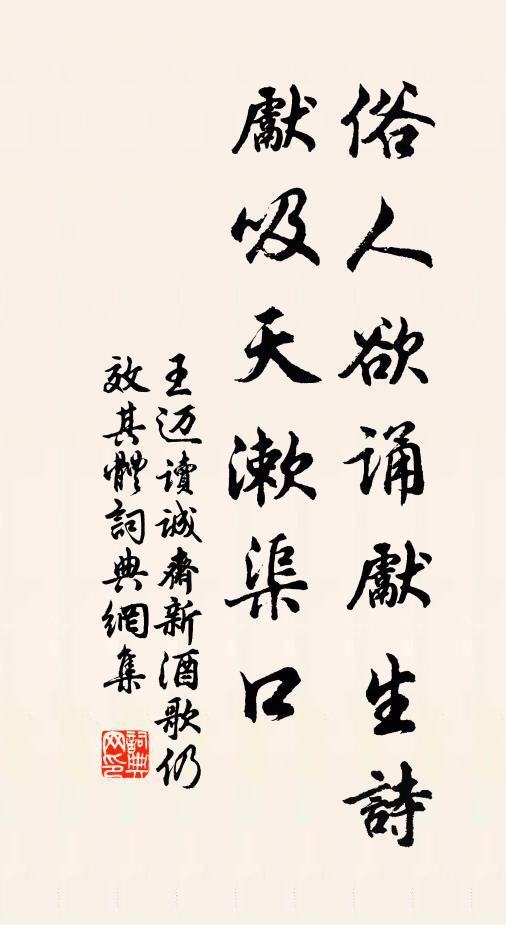 俗人欲诵獻生詩
獻吸天漱渠口
王迈讀诚齋新酒歌仍
效其體詞典網集
詞典
网印